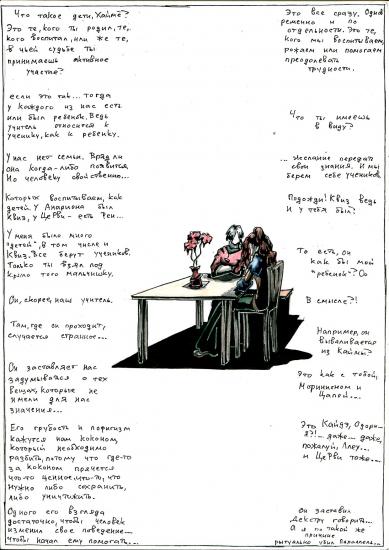 Что такое дети, Хайме?
Это те, кого ты родил, те,
кого воспитал, или же те,
в чьей судьбе ты
принимаешь активное
участие?
Это все сразу. Одно
временно и по
отдельности. Это те,
кого мы воспитываем,
рожаем или помогаем
преодолевать
трудности.
если это так... тогда
у каждого из нас есть
или был ребенок. Ведь
учитель относится к
ученику, как к ребенку.
Что ты имеешь
в виду?
У нас нет семьи. Вряд ли
она когда-либо появится.
Но человеку свойственно...
... желание передать
свои знания. И мы
берем себе учеников.
Которых воспитываем, как
детей. У Анариона был
Квиз, у Церви - есть Рен...
Подожди! Квиз ведь
и у тебя был!
У меня было много
"детей", в том числе и
Квиз. Все берут учеников.
Только ты взял под
крыло того мальчишку.
То есть, он
как бы мой
"ребенок"? Оо
Он, скорее, наш учитель.
В смысле?!
Там, где он проходит,
случается странное...
Например, он
вываливается
из Каймы?
Он заставляет нас
задумываться о тех
вещах, которые не
имели для нас
значения...
Это как с тобой,
Моринисмом и
Цапой...
Его грубость и пофигизм
кажутся нам коконом,
который необходимо
разбить, потому что где-то
за коконом прячется
что-то ценное. что-то, что
нужно либо сохранить,
либо уничтожить.
я?!... даже... даже,
пожалуй, Ллеу...
и Церви тоже...
Одного его взгляда
достаточно, чтобы человек
изменил свое поведение...
чтобы начал ему помогать...
Он заставил
Декстру говорить...
А я по такой же
причине
ритуально убил